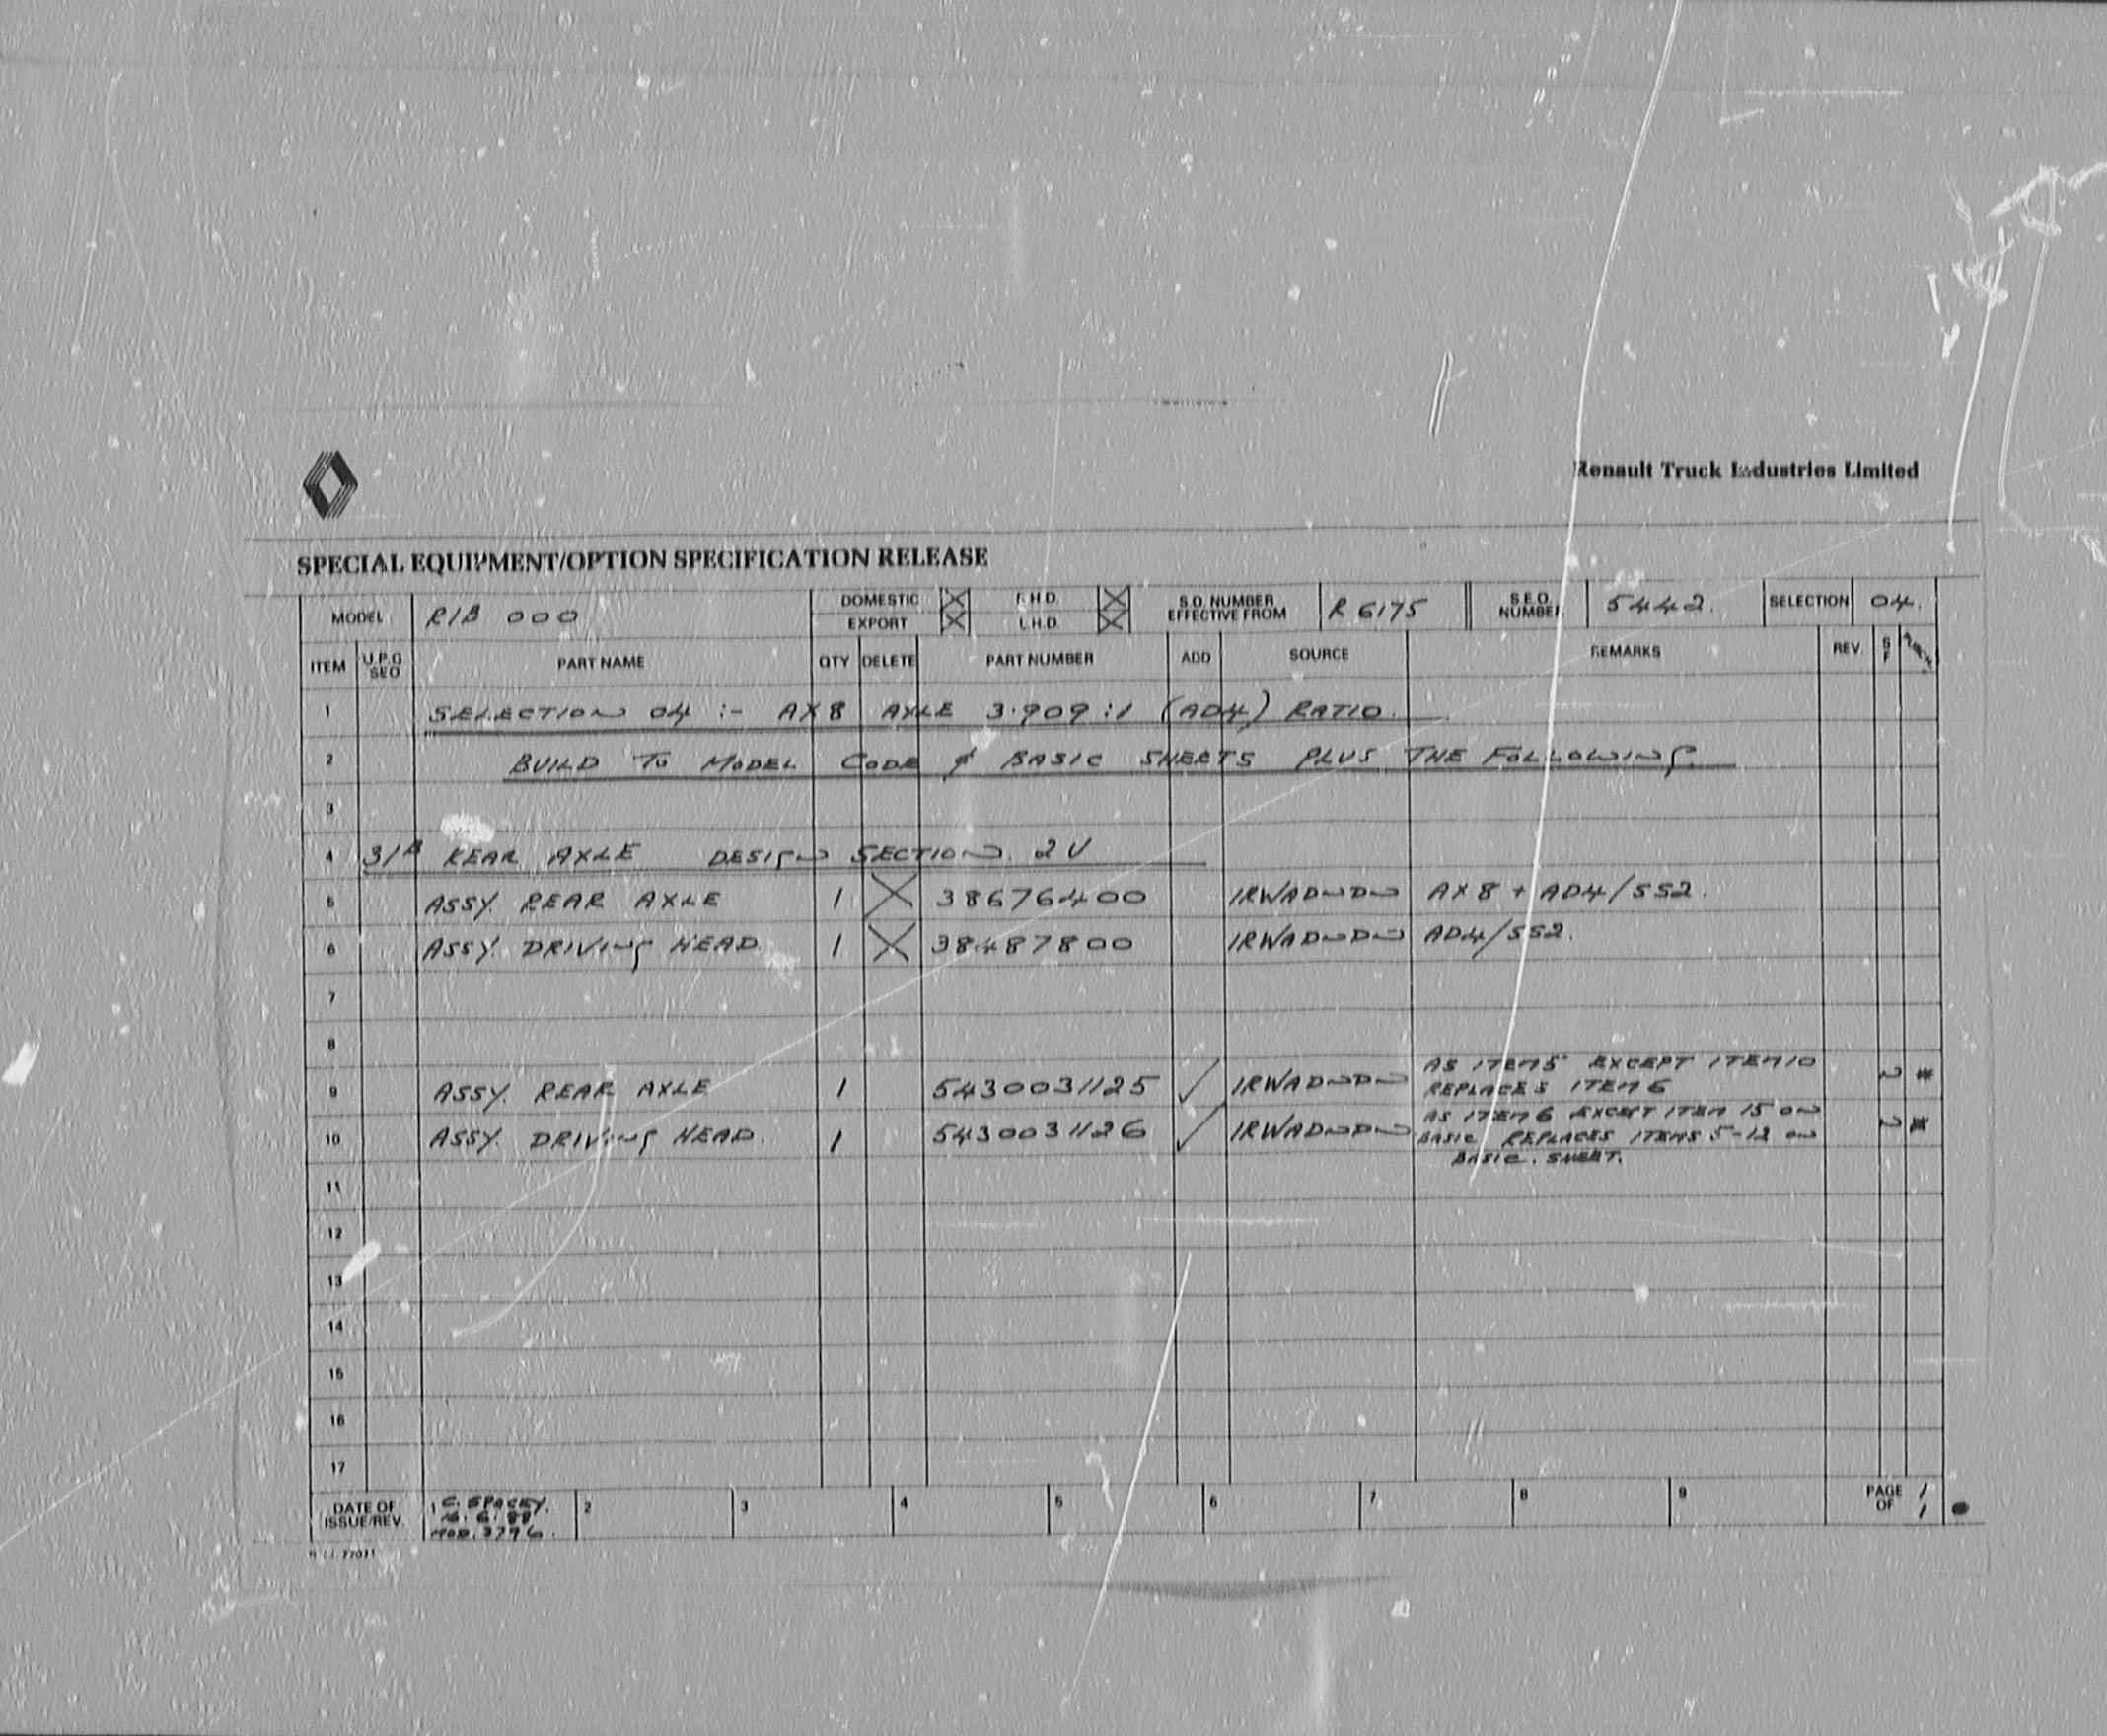 Renault Truck Industries Limited
SPECIAL EQUIPMENT/OPTION SPECIFICATION RELEASE
MODEL R1B 000 DOMESTIC R.H.D. S.O. NUMBER EFFECTIVE FROM R 6175 S.E.O. NUMBER 5442. SELECTION 04.
EXPORT L.H.D.
ITEM U.P.G SEQ PART NAME QTY DELETE PART NUMBER ADD SOURCE REMARKS REV. S F
1 SELECTION 04 :- AX8 AXLE 3.909:1 (AD4) RATIO.
2 BUILD TO MODEL CODE & BASIC SHEETS PLUS THE FOLLOWING.
3
4 31A REAR AXLE DESIGN SECTION. 2U
5 ASSY. REAR AXLE 1 X 38676400 IRWADNDN AX8 + AD4/SS2.
6 ASSY. DRIVING HEAD 1 X 38487800 IRWADNDN AD4/SS2.
7
8
9 ASSY. REAR AXLE 1 5430031125 ✓ IRWADNDN AS ITEM5 EXCEPT ITEM10 REPLACES ITEM6 2 *
10 ASSY. DRIVING HEAD. 1 5430031126 ✓ IRWADNDN AS ITEM6 EXCEPT ITEM 15 ON BASIC REPLACES ITEMS 5-12 ON BASIC. SHEET. 2 *
11
12
13
14
15
16
17
DATE OF ISSUE/REV. 1 C. SPACEY. 16.6.88 MOD.3796. 2 3 4 5 6 7 8 9 PAGE 1 OF 1